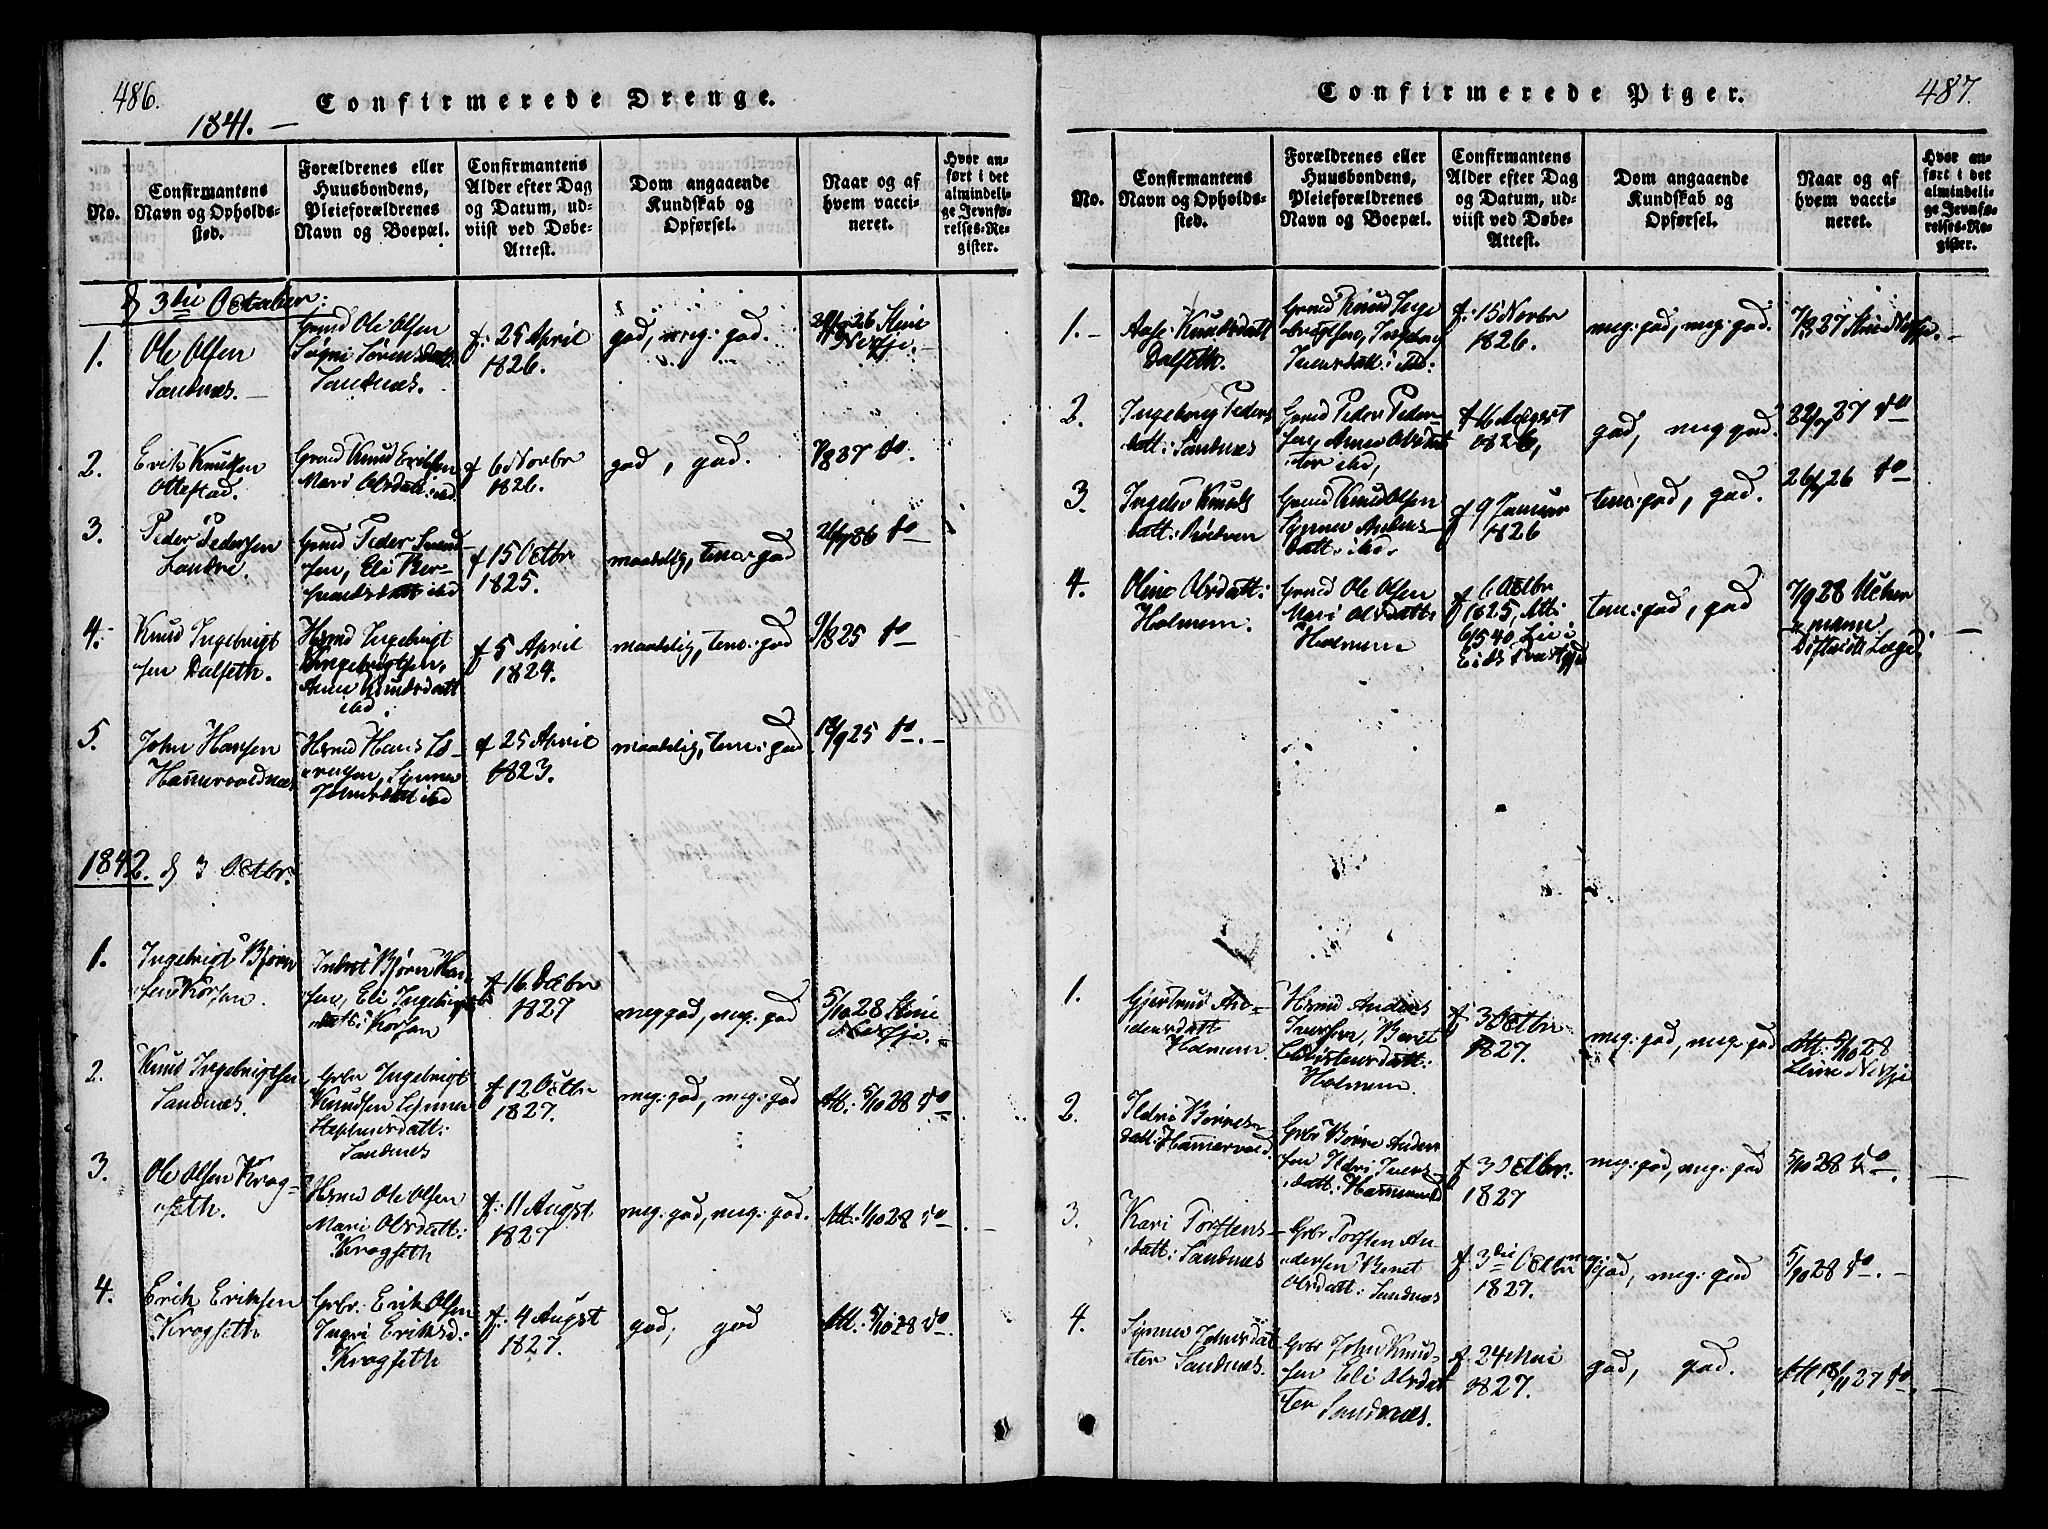 486.
Confirmerede Drenge.
1841.
No.
Confirmantens
Navn og Opholds-
sted.
Forældrenes eller
Huusbondens,
Pleieforældrenes
Navn og Boepæl.
Confirmantens
Alder efter Dag
og Datum, ud-
viist ved Døbe-
Attest.
Dom angaaende
Kundskab og
Opførsel.
Naar og af
hvem vacci-
neret.
Hvor an-
ført i det
almindeli-
ge Jevnfø-
relses-Re-
gister.
3die October:
1.
Ole Olsen
Sandnæs.
Gmd Ole Olsen
Søgni Sørensdatt:
Sandnæs.
f: 25 April
1826.
god, meg: god.
26 Stine
Nesje.
2.
Erik Knudsen
Ottestad.
Gmd Knud Eriksen
Mari Olsdatt: ibd
f 6 Novbr
1826.
god, god.
do.
3.
Peder Pedersen
Gmd Peder
sen, Eli
ibd
f 15 Octbr
1825.
maadelig, tem: god
do
4.
Knud Ingebrigt
sen Dalseth.
Hsmd Ingebrigt
Ingebrigtsen,
Anne Knudsdatt
ibd.
f 5 April
1824.
maadelig, tem: god
9/8 25 do
5.
John Hansen
Hammervoldnæs
Hsmd Hans
Synnev
Johnsdatt ibd
f 25 April
1823.
maadelig, tem: god
25 do.
1842. d 3 Octbr.
1.
Ingebrigt Bjørn
sen Korsen.
Bjørn Han
sen, Eli Ingebrigts
datt: Korsen
f 16 Decbr
1827
meg god, meg: god
5/10 28 Stine
Nesje.
2.
Knud Ingebrigtsen
Sandnæs.
Grbr Ingebrigt
Knudsen Synnev
Sandnæs
f 12 Octbr
1827.
meg: god, meg: god
Att: 5/10 28 do
3.
Ole Olsen Krog-
seth.
Hsmd Ole Olsen
Mari Olsdatt:
Krogseth
f: 11 August
1827
meg: god, meg: god.
Att: 1/10 28 do
4.
Erik Eriksen
Krogseth
Grbr: Erik Olsen
Ingri Eriksd:
Krogseth
f: 4 Augst
1827.
god, god
Att: 5/10 28 do
Confirmerede Piger.
487.
No.
Confirmantens
Navn og Opholds-
sted.
Forældrenes eller
Huusbondens,
Pleieforældrenes
Navn og Boepæl.
Confirmantens
Alder efter Dag
og Datum, ud-
viist ved Døbe-
Attest.
Dom angaaende
Kundskab og
Opførsel.
Naar og af
hvem vacci-
neret.
Hvor an-
ført i det
almindeli-
ge Jevnfø-
relses-Re-
gister.
1.
Aase Knudsdatt
Dalseth.
Gmd Knud Inge
brigtsen, Ingeborg
Iversdatt: ibd:
f: 15 Novbr
1826.
meg: god, meg: god.
27 Stine Nesje.
2.
Ingeborg Peders
datt: Sandnæs
Gmd Peder Peder-
sen, Anne Olsdat
ter ibd,
f 16 Augst
1826,
god, meg god.
27 do
3.
Ingebor Knuds
datt:
Gmd Knud Olsen
Synnev Anders
datt: ibd.
f 9 Januar
1826
tem: god, god.
26 do
4.
Oline Olsdatt:
Holmem.
Gmd Ole Olsen
Mari Olsdatt:
Holmem
f 6 Octbr
1825, Att:
Eids Præstegjd
tem: god, god
7/9 28
Distrikts Læge.
1.
Gjertrud An-
dersdatt
Holmem.
Hsmd Anders
Iversen, Beret
Christensdatt:
Holmem
f: 3 Octbr
1827.
meg: god, meg: god
Att: 5/10 28
Stine Nesje
2.
Ildri Børres-
datt: Hammervold.
Grbr Børre Ander
sen Ildri Ivers
datt: Hammervold
f 3 Octbr.
1827
meg: god, meg: god
5/10 28 do
3.
Kari Torstens-
datt: Sandnæs
Grbr Torsten An-
dersen Beret
Olsdatt: Sandnæs
f. 3die Octbr
1827.
meg: god, meg: god
5/10 28 do.
4.
Synnev Johnsdat
ter Sandnæs.
Grbr John Knud-
sen Eli Olsdat
ter Sandnæs.
f. 24 Mai
1827.
god, god.
Att 18/11 27 do.